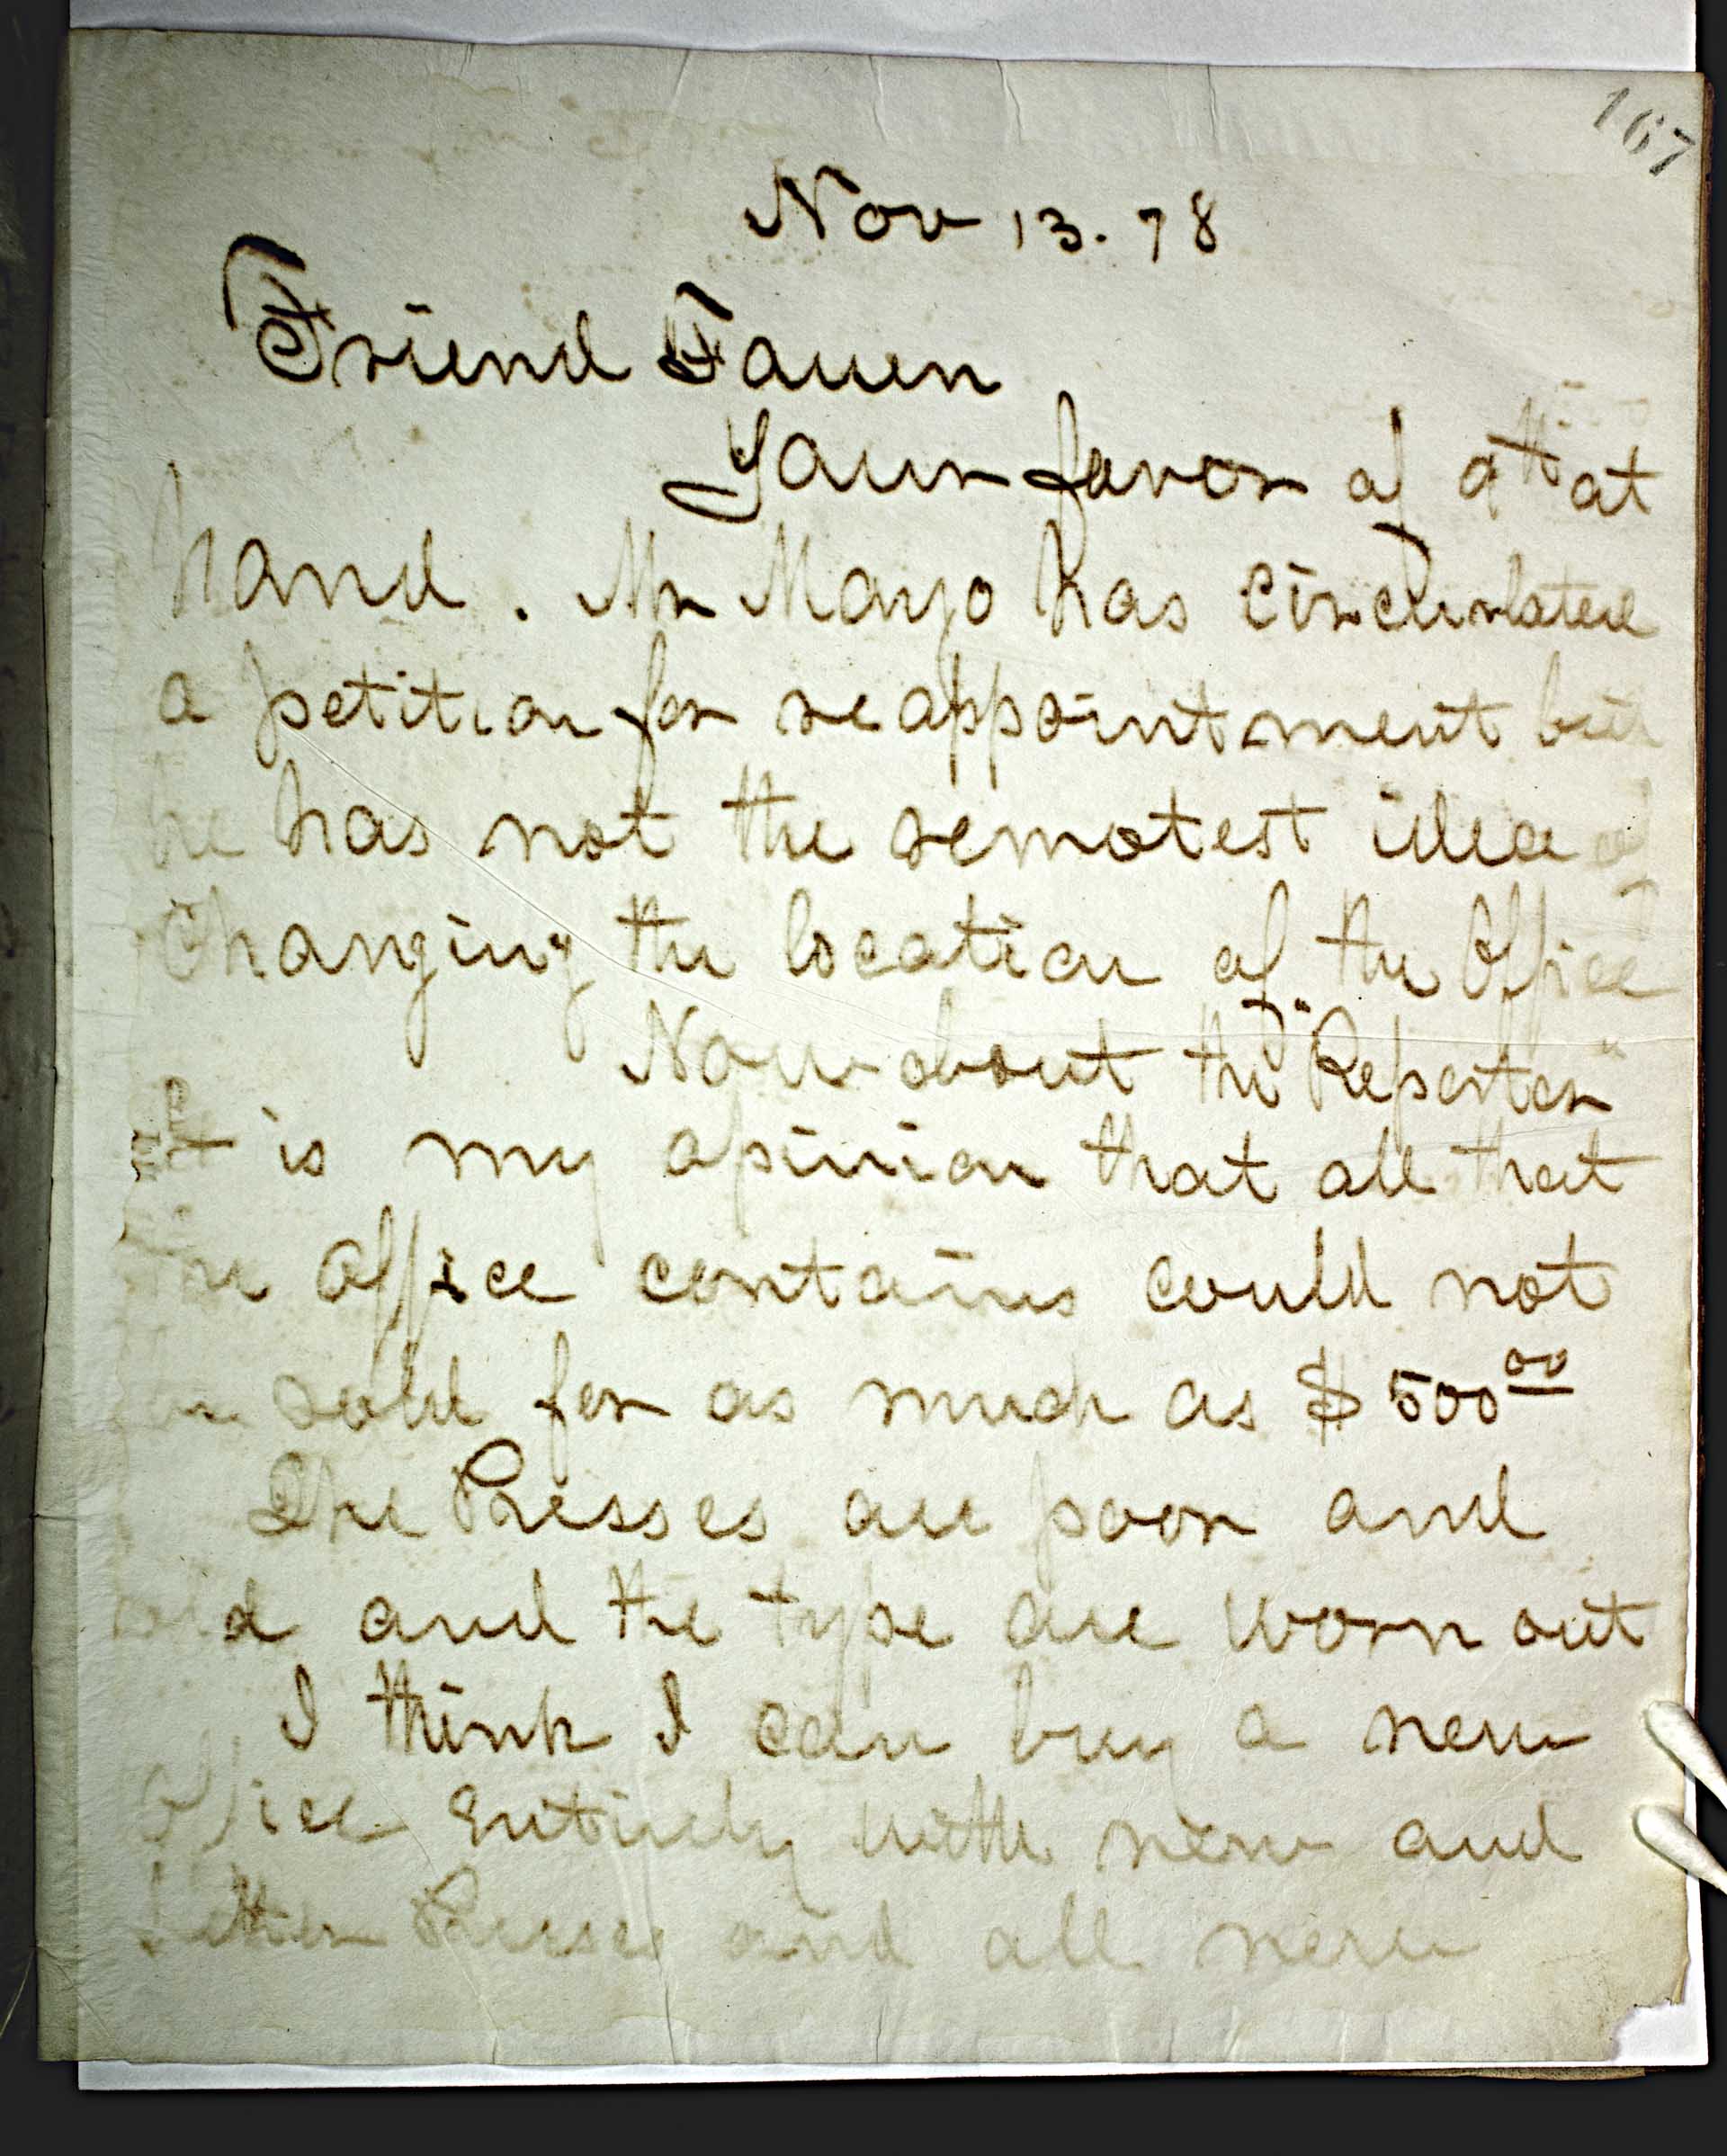 167
Nov 13. 78
Friend Fauen
Your favor of 9th at
hand. Mr Mayo has circulated
a petition for reappointment but
he has not the remotest idea of
changing the location of the Office
Now about the "Reporter"
It is my opinion that all that
the office contains could not
be sold for as much as $500 00
The Presses are poor and
old and the type are worn out
I think I can buy a new
office entirely with new and
better Presses and all new